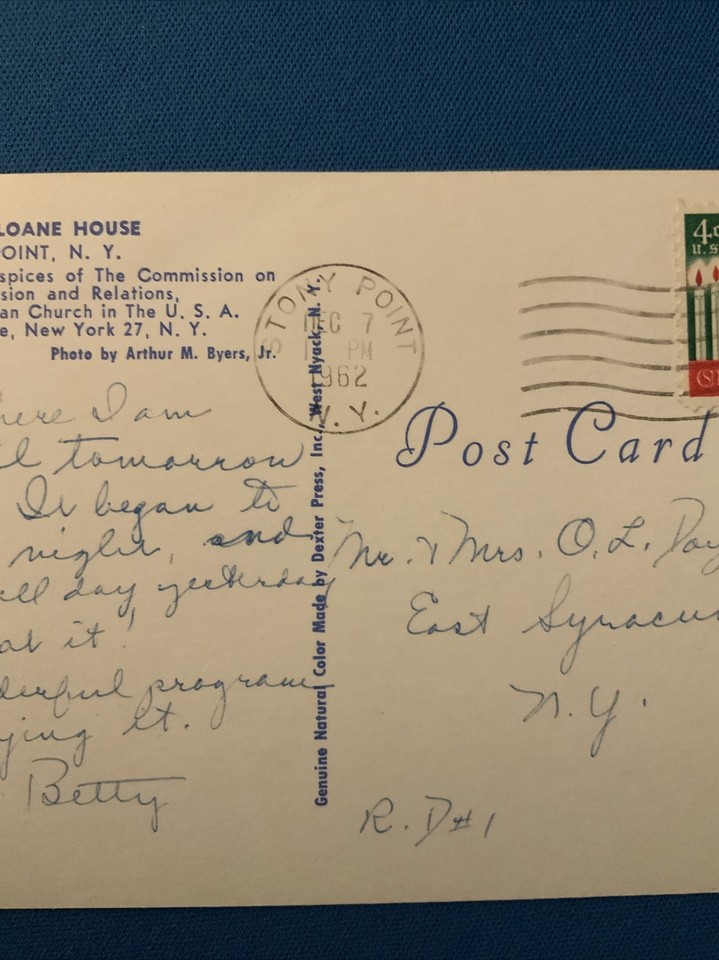 LOANE HOUSE
POINT, N. Y.
spices of The Commission on
sion and Relations,
an Church in The U. S. A.
e, New York 27, N. Y.
Photo by Arthur M. Byers, Jr.
here I am
l tomorrow
It began to
night, and
all day yesterday
at it!
derful program
ying it.
Betty
Genuine Natural Color Made by Dexter Press, Inc., West Nyack, N. Y.
STONY POINT
DEC 7
PM
1962
N. Y.
4¢
U.S
Post Card
Mr. & Mrs. O. L. Day
East Syracus
N.Y.
R. D #1